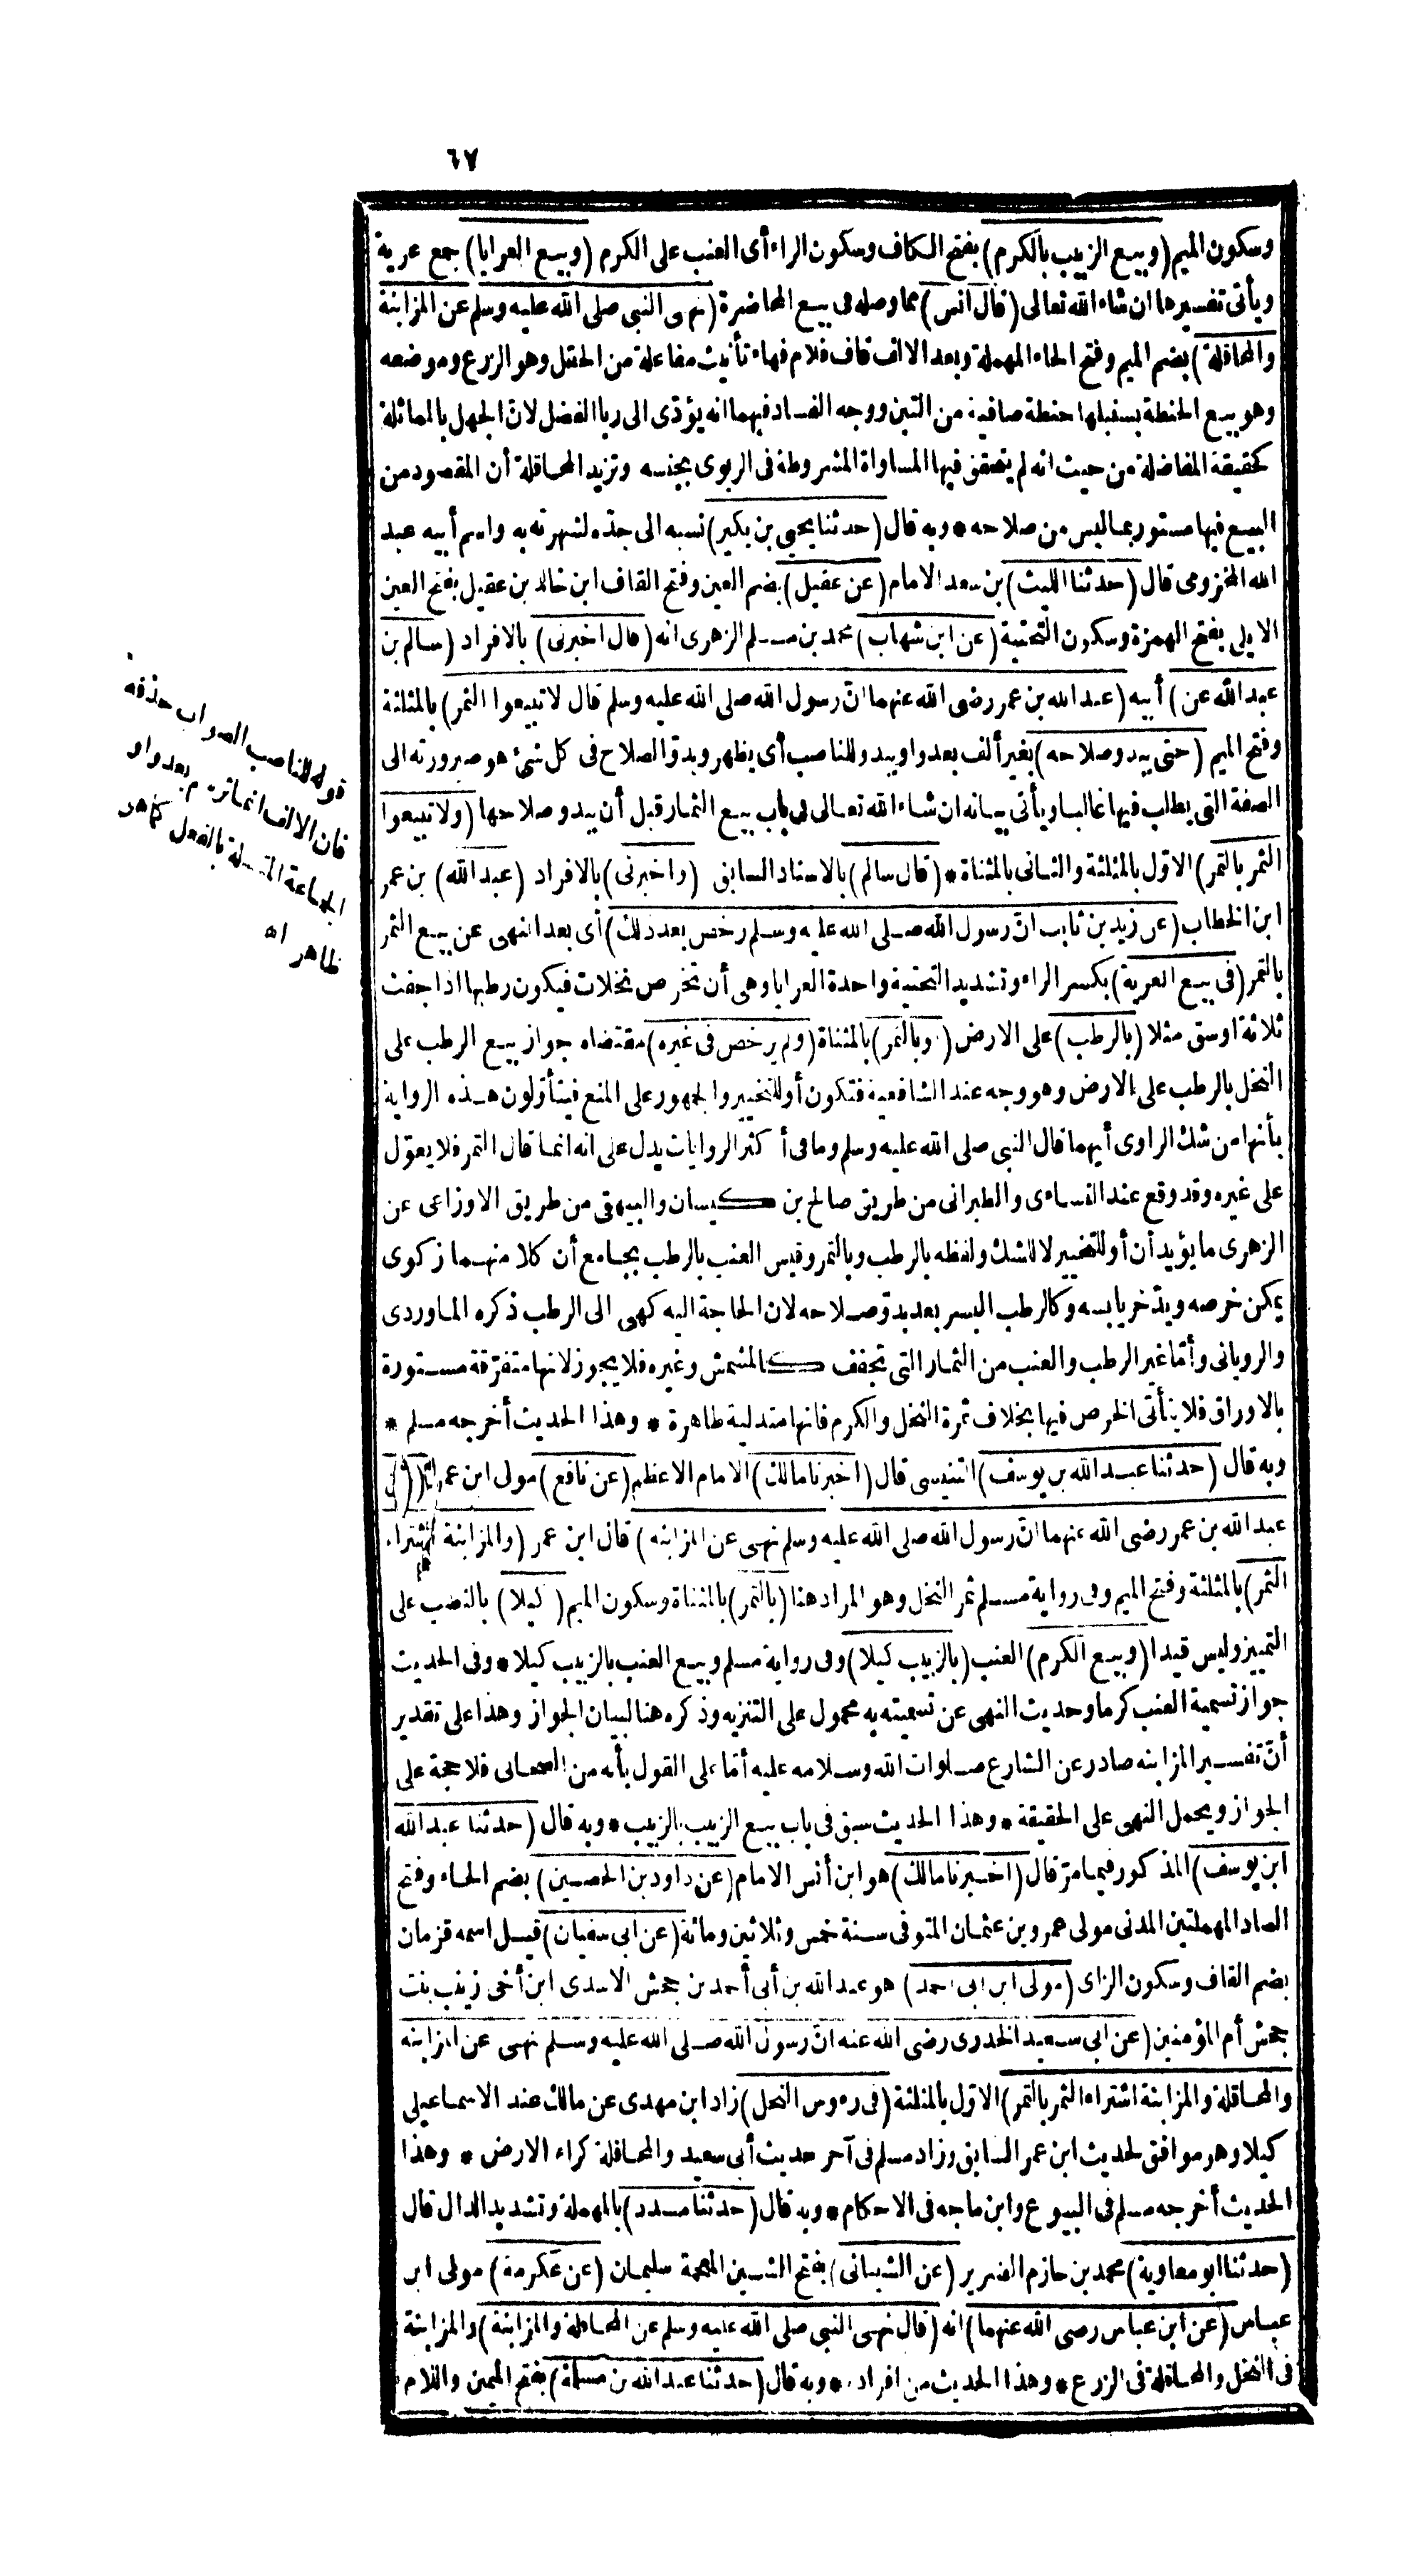 ٦٧
وسكون الميم (وبيع الزبيب بالكرم) بفتح الكاف وسكون الراء أى العنب على الكرم (وبيع العرايا) جمع عرية
ويأتى تفسيرها ان شاء الله تعالى (قال انس) مما وصله فى بيع المخاضرة (نهى النبى صلى الله عليه وسلم عن المزابنة
والمحاقلة) بضم الميم وفتح الحاء المهملة وبعد الالف قاف فلام فهاء تأنيث مفاعلة من الحقل وهو الزرع وموضعه
وهو بيع الحنطة بسنبلها بحنطة صافية من التبن ووجه الفساد فيهما انه يؤدّى الى ربا الفضل لانّ الجهل بالمماثلة
كحقيقة المفاضلة من حيث انه لم يتحقق فيها المساواة المشروطة فى الربوى بجنسه وتزيد المحاقلة أن المقصود من
البيع فيها مستور بما ليس من صلاحه * وبه قال (حدثنا يحيى بن بكير) نسبه الى جدّه لشهرته به واسم أبيه عبد
الله المخزومى قال (حدثنا الليث) بن سعد الامام (عن عقيل) بضم العين وفتح القاف ابن خالد بن عقيل بفتح العين
الايلى بفتح الهمزة وسكون التحتية (عن ابن شهاب) محمد بن مسلم الزهرى انه (قال اخبرنى) بالافراد (سالم بن
عبد الله عن) أبيه (عبد الله بن عمر رضى الله عنهما انّ رسول الله صلى الله عليه وسلم قال لا تبيعوا الثمر) بالمثلثة
وفتح الميم (حتى يبدو صلاحه) بغير ألف بعد واو يبدو للناصب أى يظهر وبدوّ الصلاح فى كل شئ هو صيرورته الى
الصفة التى يطلب فيها غالبا ويأتى بيانه ان شاء الله تعالى فى باب بيع الثمار قبل أن يبدو صلاحها (ولا تبيعوا
الثمر بالتمر) الاوّل بالمثلثة والثانى بالمثناة * (قال سالم) بالاسناد السابق (واخبرنى) بالافراد (عبد الله) بن عمر
ابن الخطاب (عن زيد بن ثابت انّ رسول الله صلى الله عليه وسلم رخص بعد ذلك) أى بعد النهى عن بيع الثمر
بالتمر (فى بيع العرية) بكسر الراء وتشديد التحتية واحدة العرايا وهى أن تخرص نخلات فيكون رطبها اذا جفت
ثلاثة اوسق مثلا (بالرطب) على الارض (أو بالتمر) بالمثناة (ولم يرخص فى غيره) مقتضاه جواز بيع الرطب على
النخل بالرطب على الارض وهو وجه عند الشافعية فتكون أو للتخيير والجمهور على المنع فيتأوّلون هذه الرواية
بأنها من شك الراوى أيهما قال النبى صلى الله عليه وسلم وما فى أكثر الروايات يدل على انه انما قال التمر فلا يعوّل
على غيره وقد وقع عند النساءى والطبرانى من طريق صالح بن كيسان والبيهقى من طريق الاوزاعى عن
الزهرى ما يؤيد أن أو للتخيير لا للشك ولفظه بالرطب وبالتمر وقيس العنب بالرطب بجامع أن كلا منهما زكوى
يمكن خرصه ويدّخر يابسه وكالرطب البسر بعد بدوّ صلاحه لان الحاجة اليه كهى الى الرطب ذكره الماوردى
والرويانى وأمّا غير الرطب والعنب من الثمار التى تجفف كالمشمش وغيره فلا يجوز لانها متفرّقة مستورة
بالاوراق فلا يتأتى الخرص فيها بخلاف ثمرة النخل والكرم فانها متدلية ظاهرة * وهذا الحديث أخرجه مسلم *
وبه قال (حدثنا عبد الله بن يوسف) التنيسى قال (اخبرنا مالك) الامام الاعظم (عن نافع) مولى ابن عمر
عبد الله بن عمر رضى الله عنهما انّ رسول الله صلى الله عليه وسلم نهى عن المزابنة) قال ابن عمر (والمزابنة اشتراء
الثمر) بالمثلثة وفتح الميم وفى رواية مسلم ثمر النخل وهو المراد هنا (بالتمر) بالمثناة وسكون الميم (كيلا) بالنصب على
التمييز وليس قيدا (وبيع الكرم) العنب (بالزبيب كيلا) وفى رواية مسلم وبيع العنب بالزبيب كيلا * وفى الحديث
جواز تسمية العنب كرما وحديث النهى عن تسميته به محمول على التنزيه وذكره هنا لبيان الجواز وهذا على تقدير
أنّ تفسير المزابنة صادر عن الشارع صلوات الله وسلامه عليه أمّا على القول بأنه من الصحابى فلا حجة على
الجواز ويحمل النهى على الحقيقة * وهذا الحديث سبق فى باب بيع الزبيب بالزبيب * وبه قال (حدثنا عبد الله
ابن يوسف) المذكور فيما مرّ قال (اخبرنا مالك) هو ابن أنس الامام (عن داود بن الحصين) بضم الحاء وفتح
الصاد المهملتين المدنى مولى عمرو بن عثمان المتوفى سنة خمس وثلاثين ومائة (عن ابى سفيان) قيل اسمه قزمان
بضم القاف وسكون الزاى (مولى ابن ابى احمد) هو عبد الله بن أبى أحمد بن جحش الاسدى ابن أخى زينب بنت
جحش أم المؤمنين (عن ابى سعيد الخدرى رضى الله عنه انّ رسول الله صلى الله عليه وسلم نهى عن المزابنة
والمحاقلة والمزابنة اشتراء الثمر بالتمر) الاوّل بالمثلثة (فى رءوس النخل) زاد ابن مهدى عن مالك عند الاسماعيلى
كيلا وهو موافق لحديث ابن عمر السابق وزاد مسلم فى آخر حديث أبى سعيد والمحاقلة كراء الارض * وهذا
الحديث أخرجه مسلم فى البيوع وابن ماجه فى الاحكام * وبه قال (حدثنا مسدد) بالمهملة وتشديد الدال قال
(حدثنا ابو معاوية) محمد بن حازم الضرير (عن الشيبانى) بفتح الشين المعجمة سليمان (عن عكرمة) مولى ابن
عباس (عن ابن عباس رضى الله عنهما) انه (قال نهى النبى صلى الله عليه وسلم عن المحاقلة والمزابنة) والمزابنة
فى النخل والمحاقلة فى الزرع * وهذا الحديث من افراده * وبه قال (حدثنا عبد الله بن مسلمة) بفتح الميمين واللام
قوله للناصب الصواب حذفه
فان الالف انما ترسم بعد واو
الجماعة المتصلة بالفعل كما هو
ظاهر اه